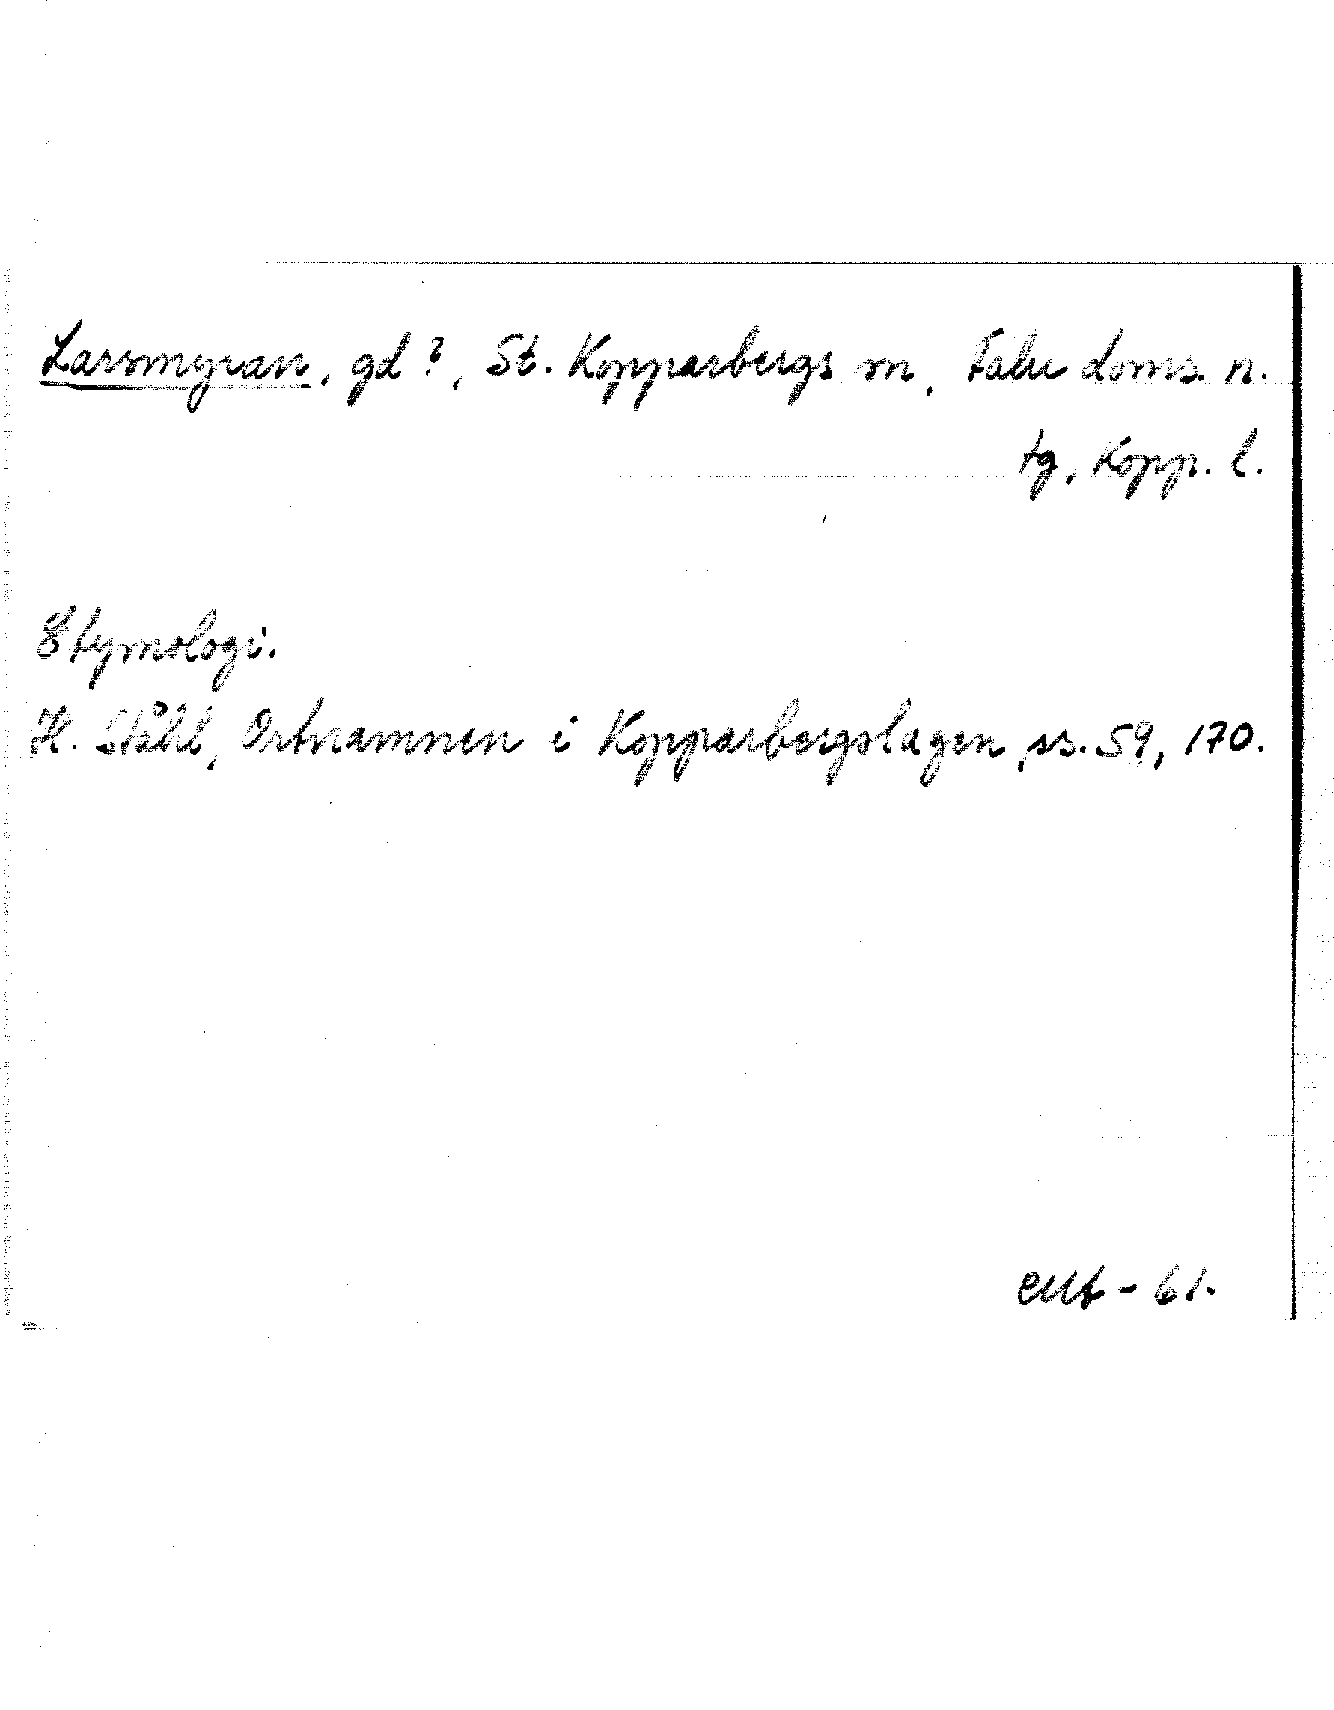 Larsmyran, gd?, St. Kopparbergs sn, Falu doms. n.
tg, Kopp. l.
Etymologi.
H. Ståhl, Ortnamnen i Kopparbergslagen, ss. 59, 170.
- 61.